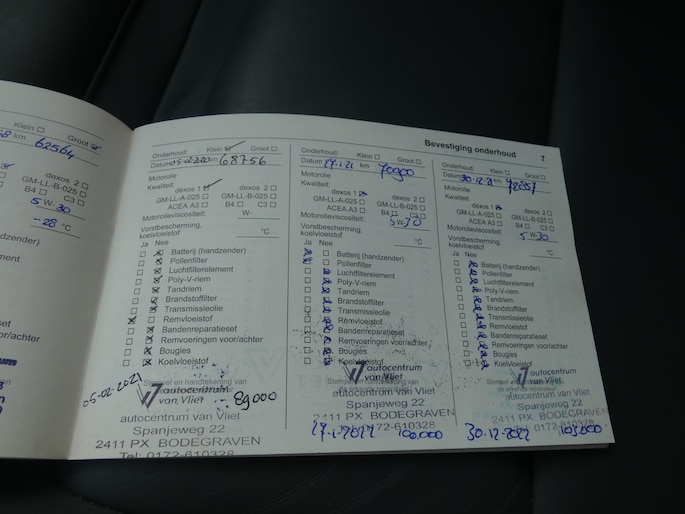 Klein Groot
km 62564
dexos 2
GM-LL-B-025
B4 C3
5 W-30
-28 °C
Bevestiging onderhoud 7
Onderhoud: Klein Groot
Datum 05-02-2020 km 68756
Motorolie
Kwaliteit: dexos 1 dexos 2
GM-LL-A-025 GM-LL-B-025
ACEA A3 B4 C3
Motorolieviscositeit: W-
Vorstbescherming,
koelvloeistof °C
Ja Nee
Batterij (handzender)
Pollenfilter
Luchtfilterelement
Poly-V-riem
Tandriem
Brandstoffilter
Transmissieolie
Remvloeistof
Bandenreparatieset
Remvoeringen voor/achter
Bougies
Koelvloeistof
Stempel en handtekening van
05-02-2021
autocentrum
van Vliet 89000
autocentrum van Vliet
Spanjeweg 22
2411 PX BODEGRAVEN
Tel: 0172-610328
Onderhoud: Klein Groot
Datum km 70900
Motorolie
Kwaliteit: dexos 1 dexos 2
GM-LL-A-025 GM-LL-B-025
ACEA A3 B4 C3
Motorolieviscositeit: 5 W-30
Vorstbescherming,
koelvloeistof °C
Ja Nee
Batterij (handzender)
Pollenfilter
Luchtfilterelement
Poly-V-riem
Tandriem
Brandstoffilter
Transmissieolie
Remvloeistof
Bandenreparatieset
Remvoeringen voor/achter
Bougies
Koelvloeistof
autocentrum
van Vliet
autocentrum van Vliet
Spanjeweg 22
2411 PX BODEGRAVEN
0172-610328
100.000
Onderhoud: Klein Groot
Datum 30-12-21 km
Motorolie
Kwaliteit: dexos 1 dexos 2
GM-LL-A-025 GM-LL-B-025
ACEA A3 B4 C3
Motorolieviscositeit: 5 W-30
Vorstbescherming,
koelvloeistof °C
Ja Nee
Batterij (handzender)
Pollenfilter
Luchtfilterelement
Poly-V-riem
Tandriem
Brandstoffilter
Transmissieolie
Remvloeistof
Bandenreparatieset
Remvoeringen voor/achter
Bougies
Koelvloeistof
autocentrum
van Vliet
autocentrum van Vliet
Spanjeweg 22
2411 PX BODEGRAVEN
30-12-2022 103.000